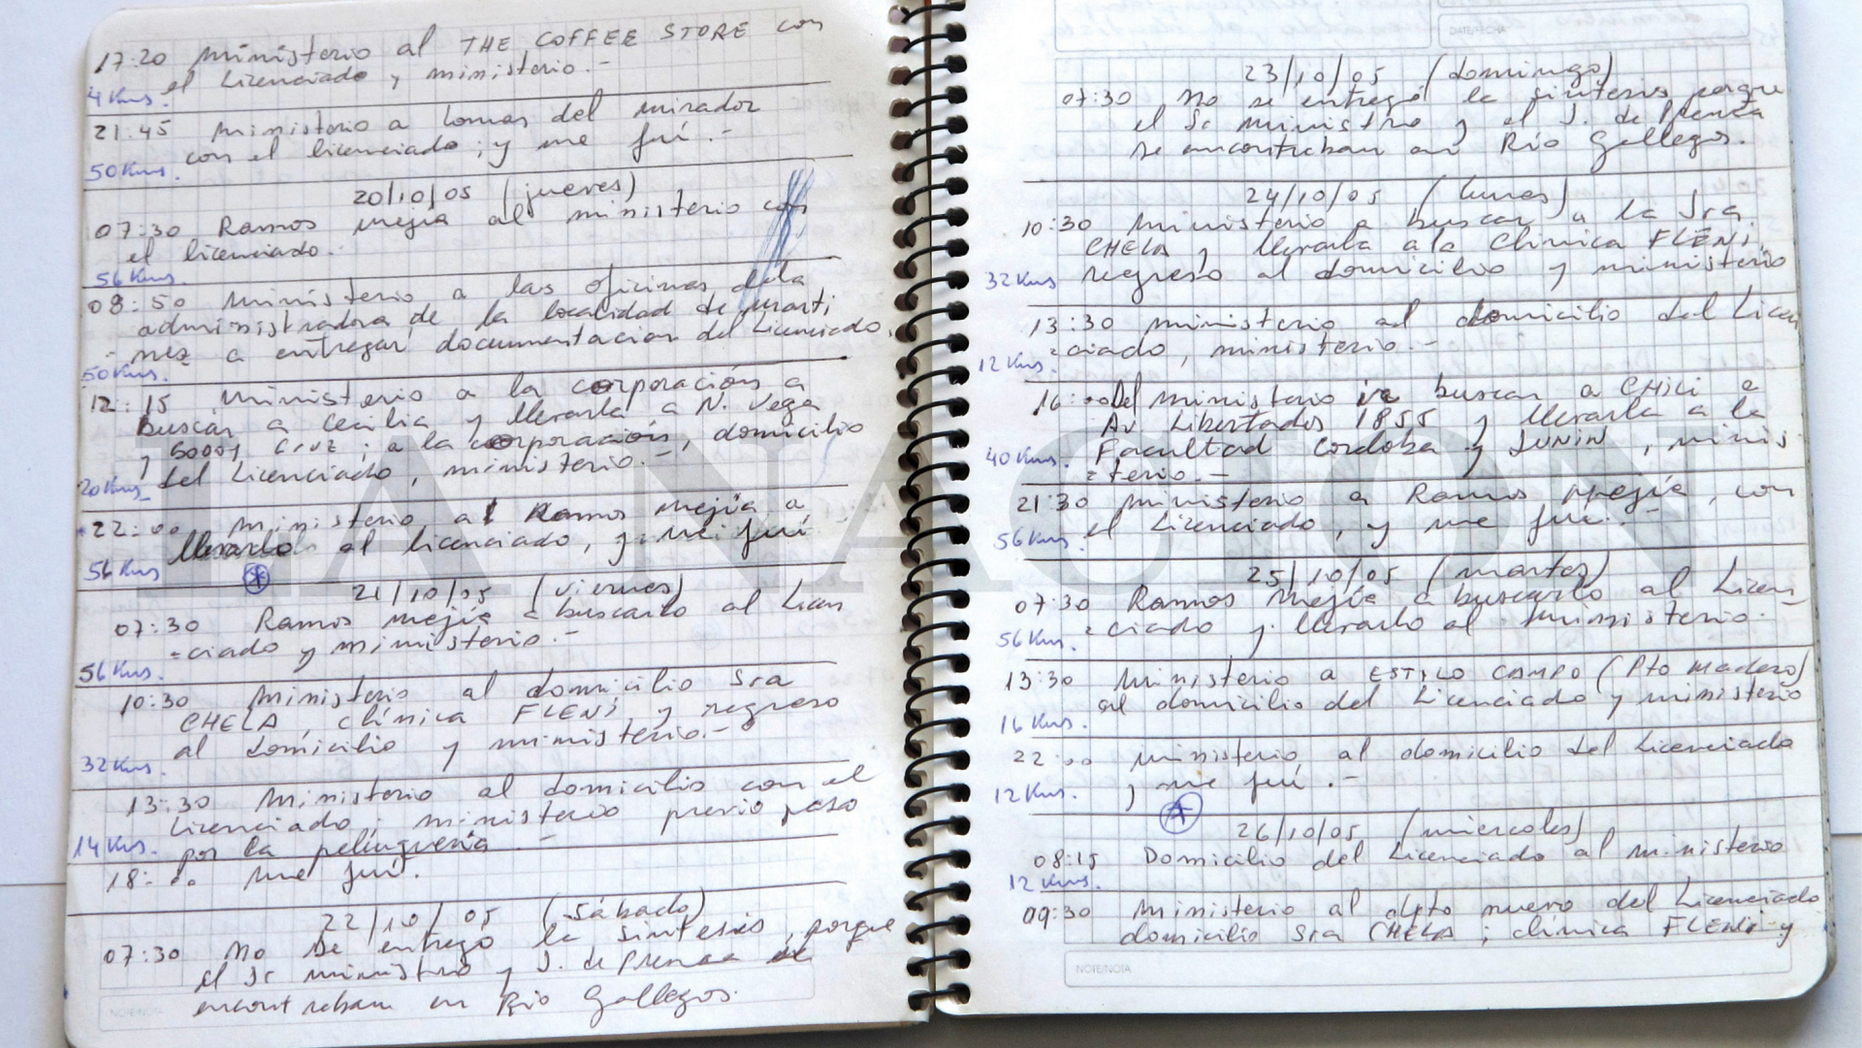 17:20 ministerio al THE COFFEE STORE con
el Licenciado y ministerio.-
4 Kms.
21:45 ministerio a Lomas del mirador
con el licenciado; y me fuí.-
50 Kms.
20/10/05 (jueves)
07:30 Ramos mejia al ministerio con
el licenciado.-
56 Kms.
08:50 ministerio a las oficinas de la
administradora de la localidad de marti
nez a entregar documentacion del Licenciado.
50 Kms.
12:15 ministerio a la corporación a
buscar a Cecilia y llevarla a N. Vega
y Godoy Cruz; a la corporación, domicilio
del Licenciado, ministerio.-
20 Kms
22:00 ministerio al Ramos mejia a
llevarlo al licenciado, y me fuí
56 Kms
21/10/05 (viernes)
07:30 Ramos mejia a buscarlo al Licen
=ciado y ministerio.-
56 Kms.
10:30 ministerio al domicilio Sra
CHELA, clínica FLENI y regreso
al domicilio y ministerio.-
32 Kms.
13:30 ministerio al domicilio con el
Licenciado; ministerio previo paso
por la peluquería -
14 Kms.
18:00 me fuí.
22/10/05 (Sábado)
07:30 No se entregó la síntesis, porque
el Sr ministro y J. de Prensa se
encontraban en Río Gallegos.
NOTE/NOTA
DATE/FECHA
23/10/05 (domingo)
07:30 No se entregó la síntesis porque
el Sr ministro y el J. de Prensa
se encontraban en Río Gallegos.
24/10/05 (lunes)
10:30 ministerio a buscar a la Sra
CHELA y llevarla a la Clínica FLENI,
regreso al domicilio y ministerio
32 Kms
13:30 ministerio al domicilio del Licen
=ciado, ministerio.-
12 Kms.
16:00 Del ministerio ir buscar a CHILI a
Av Libertador 1855 y llevarla a la
Facultad Cordoba y JUNIN, minis
=terio.-
40 Kms.
21:30 ministerio a Ramos mejía, con
el Licenciado, y me fuí.-
56 Kms.
25/10/05 (martes)
07:30 Ramos mejia a buscarlo al Licen
=ciado y llevarlo al ministerio.
56 Kms.
13:30 ministerio a ESTILO CAMPO (Pto Madero)
al domicilio del Licenciado y ministerio
16 Kms.
22:00 ministerio al domicilio del Licenciado
y me fuí.-
12 Kms.
26/10/05 (miercoles)
08:15 Domicilio del Licenciado al ministerio
12 Kms.
09:30 ministerio al dpto nuevo del Licenciado
domicilio Sra CHELA; clínica FLENI y
NOTE/NOTA
LA NACION